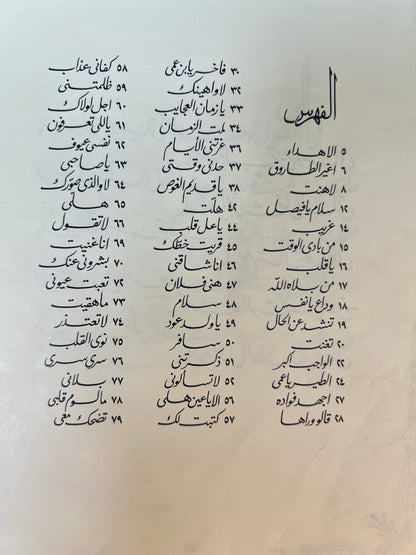 الفهرس
٥ الاهداء
٦ اغير الطاروق
٨ لاهنت
١٢ سلام يا فيصل
١٤ غريب
١٥ من بادي الوقت
١٦ يا قلب
١٧ من بلاه الله
١٨ وداع يا نفس
١٩ تنشد عن الحال
٢٠ تغنت
٢٢ الواجب اكبر
٢٤ الطير يا عمي
٢٧ اجهد فواده
٢٨ قالو وراها
٣٠ فاخر يا بن عمي
٣٢ لا واهينك
٣٣ يا زمان العجايب
٣٤ لمت الزمان
٣٦ عزتني الأيام
٣٧ حدني وقتي
٣٨ يا قديم الغرض
٤٢ هلّت
٤٤ يا عل قلب
٤٥ قريت خطك
٤٦ انا شاقني
٤٧ هني فلان
٤٨ سلام
٤٩ يا ولد عود
٥٠ سافر
٥١ ذكرتني
٥٢ لا تسألوني
٥٦ الا يا عين هلي
٥٧ كتبت لك
٥٨ كفاني عذاب
٥٩ ظلمتني
٦٠ اجل لولاك
٦١ يا للي تعرفون
٦٢ نفسي عيوف
٦٣ يا صاحبي
٦٤ لا والذي صورك
٦٥ هلي
٦٦ لا تقول
٦٩ انا غنيت
٧٠ بشروني عنك
٧٢ تعبت عيوني
٧٣ ما هقيت
٧٤ لا تعتذر
٧٥ نوى القلب
٧٦ سرى سرى
٧٧ بلاني
٧٨ مالوم قلبي
٧٩ تضحك معي